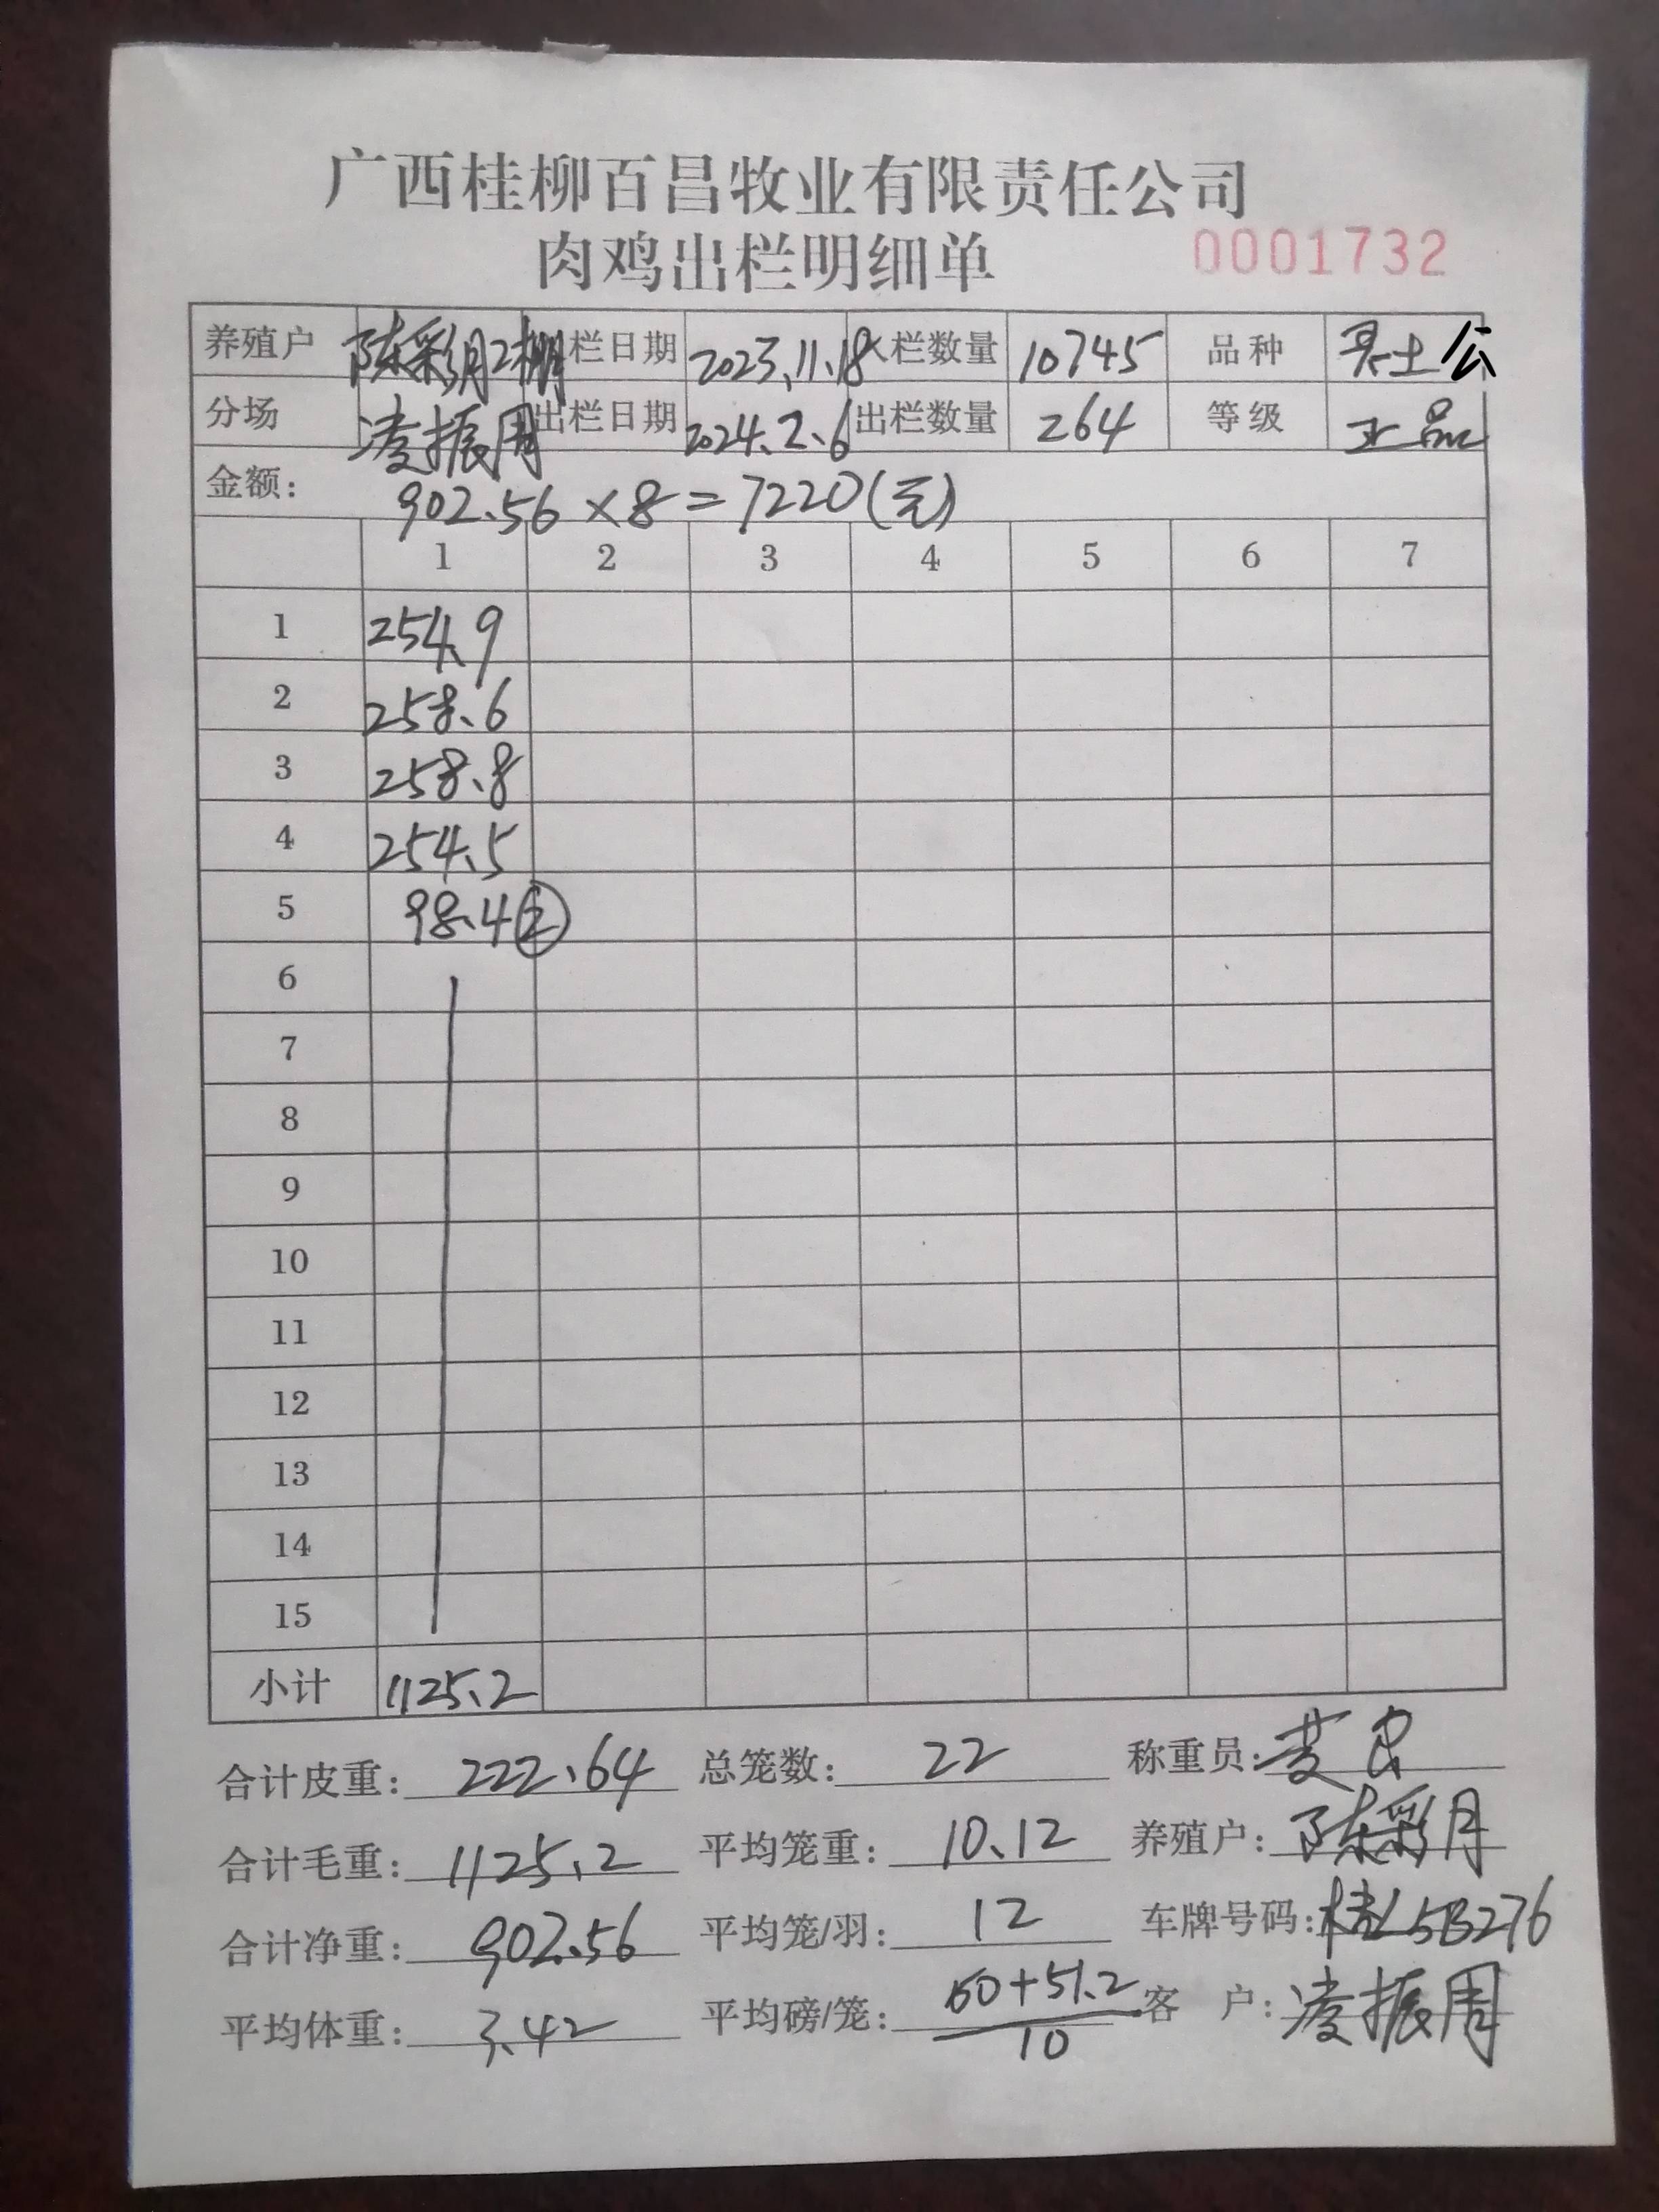 广西桂柳百昌牧业有限责任公司
肉鸡出栏明细单 0001732
养殖户 陈彩月2棚 栏日期 2023.11.18 栏数量 10745 品种 土公
分场 凌振周 出栏日期 2024.2.6 出栏数量 264 等级 正品
金额: 902.56×8=7220(元)
1 2 3 4 5 6 7
1 254.9
2 258.6
3 258.8
4 254.5
5 98.4 ②
6
7
8
9
10
11
12
13
14
15
小计 1125.2
合计皮重: 222.64 总笼数: 22 称重员:
合计毛重: 1125.2 平均笼重: 10.12 养殖户: 陈彩月
合计净重: 902.56 平均笼/羽: 12 车牌号码: 桂L5B276
平均体重: 3.42 平均磅/笼: 50+51.2/10 客 户: 凌振周